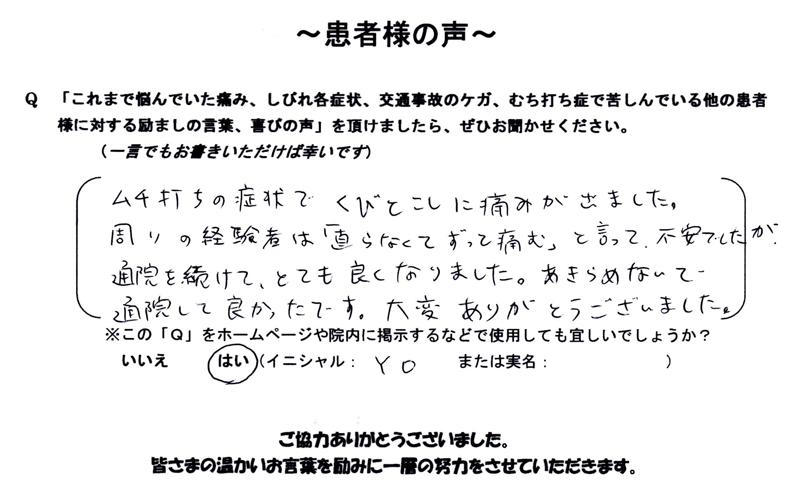 ～患者様の声～
Q 「これまで悩んでいた痛み、しびれ各症状、交通事故のケガ、むち打ち症で苦しんでいる他の患者
様に対する励ましの言葉、喜びの声」を頂けましたら、ぜひお聞かせください。
（一言でもお書きいただけば幸いです）
ムチ打ちの症状で くびとこしに痛みがきました。
周りの経験者は「直らなくてずって痛む」と言って、不安でしたが、
通院を続けて、とても良くなりました。あきらめないで
通院して良かったです。大変ありがとうございました。
※この「Q」をホームページや院内に掲示するなどで使用しても宜しいでしょうか？
いいえ はい（イニシャル： YO または実名： ）
ご協力ありがとうございました。
皆さまの温かいお言葉を励みに一層の努力をさせていただきます。